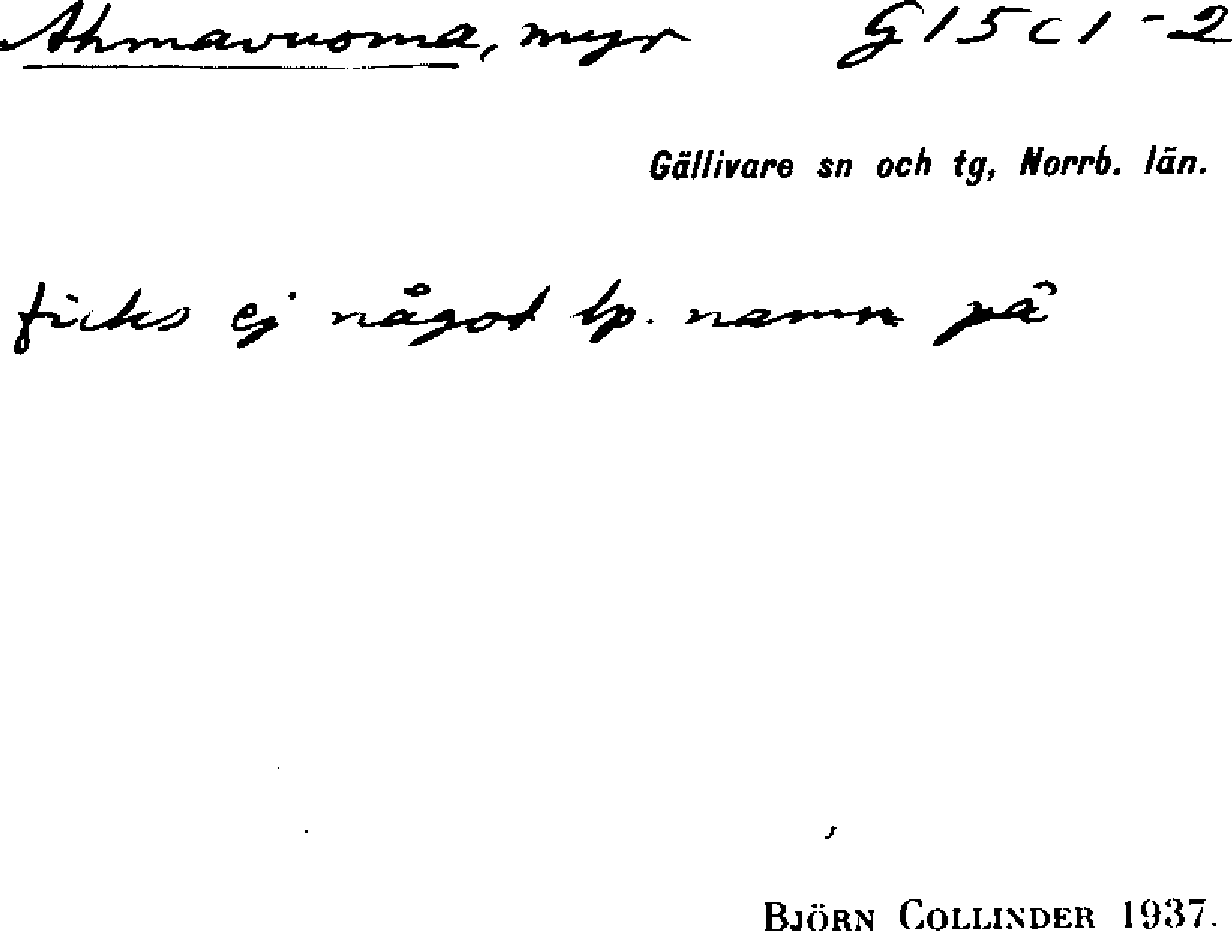 Ahmavuoma, myr G15c1-2
Gällivare sn och tg, Norrb. län.
ficks ej något lp. namn på
BJÖRN COLLINDER 1937.